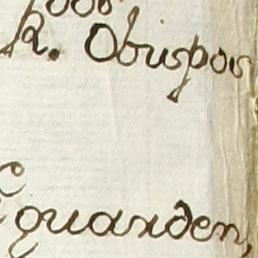 R. Obispos
guarden,